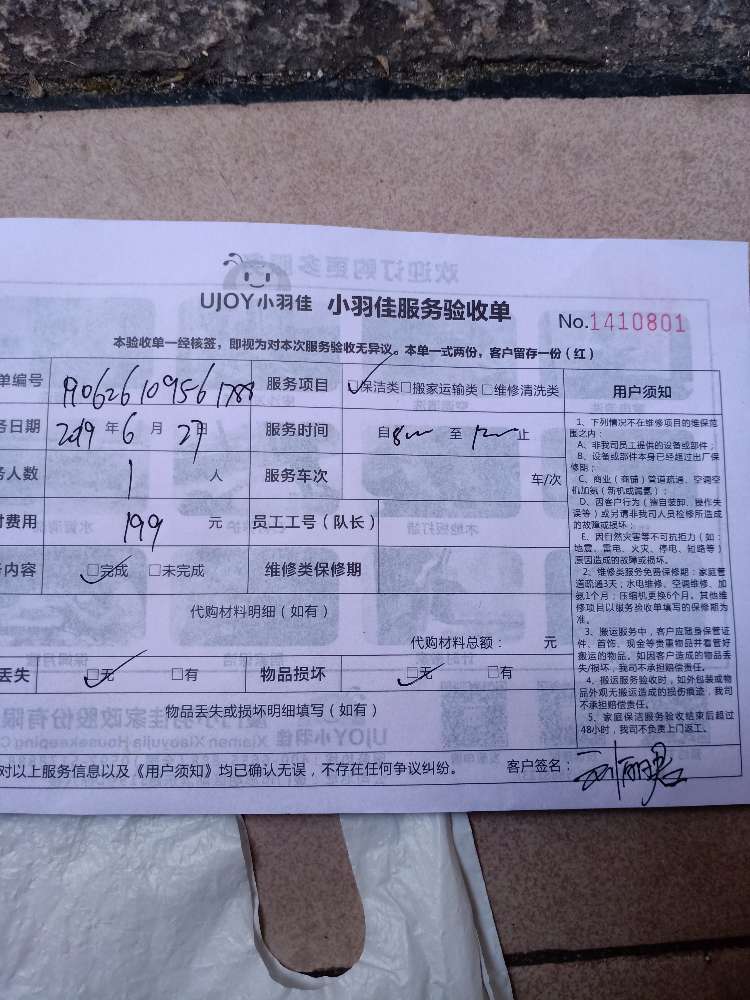 UJOY小羽佳 小羽佳服务验收单
No.1410801
本验收单一经核签，即视为对本次服务验收无异议。本单一式两份，客户留存一份（红）
单编号 服务项目 ☑保洁类□搬家运输类□维修清洗类 用户须知
务日期 2019年6月27日 服务时间 自8 至12 止
务人数 1 人 服务车次 车/次
付费用 199 元 员工工号（队长）
务内容 ☑完成 □未完成 维修类保修期
代购材料明细（如有）
代购材料总额： 元
丢失 ☑无 □有 物品损坏 ☑无 □有
物品丢失或损坏明细填写（如有）
对以上服务信息以及《用户须知》均已确认无误，不存在任何争议纠纷。 客户签名：
1、下列情况不在维修项目的维保范
围之内：
A、非我司员工提供的设备或部件；
B、设备或部件本身已经超过出厂保
修期；
C、商业（商铺）管道疏通、空调空
机加氨（新机或漏氨）；
D、因客户行为（擅自装卸、操作失
误等）或另请非我司人员检修所造成
的故障或损坏；
E、因自然灾害等不可抗拒力（如：
地震、雷电、火灾、停电、短路等）
原因造成的故障或损坏。
2、维修类服务免费保修期：家庭管
道疏通3天；水电维修、空调维修、加
氨1个月；压缩机更换6个月。其他维
修项目以服务验收单填写的保修期为
准。
3、搬运服务中，客户应随身保管证
件、首饰、现金等贵重物品并看管好
搬运的物品。如因客户造成的物品丢
失/损坏，我司不承担赔偿责任。
4、搬运服务验收时，如外包装或物
品外观无搬运造成的损伤痕迹，我司
不承担赔偿责任。
5、家庭保洁服务验收结束后超过
48小时，我司不负责上门返工。